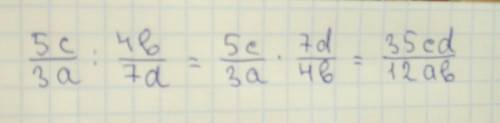 5c/3a : 4b/7d = 5c/3a · 7d/4b = 35cd/12ab